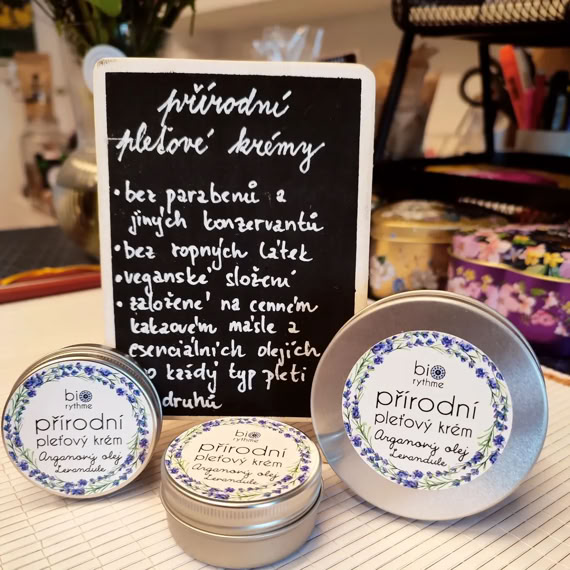 přírodní
pleťové krémy
• bez parabenů a
jiných konzervantů
• bez ropných látek
• veganské složení
• založené na cenném
kakaovém másle a
esenciálních olejích
každý typ pleti
druhů
bio
rythme
přírodní
pleťový krém
Arganový olej
Levandule
bio
rythme
přírodní
pleťový krém
Arganový olej
Levandule
bio
rythme
přírodní
pleťový krém
Arganový olej
Levandule